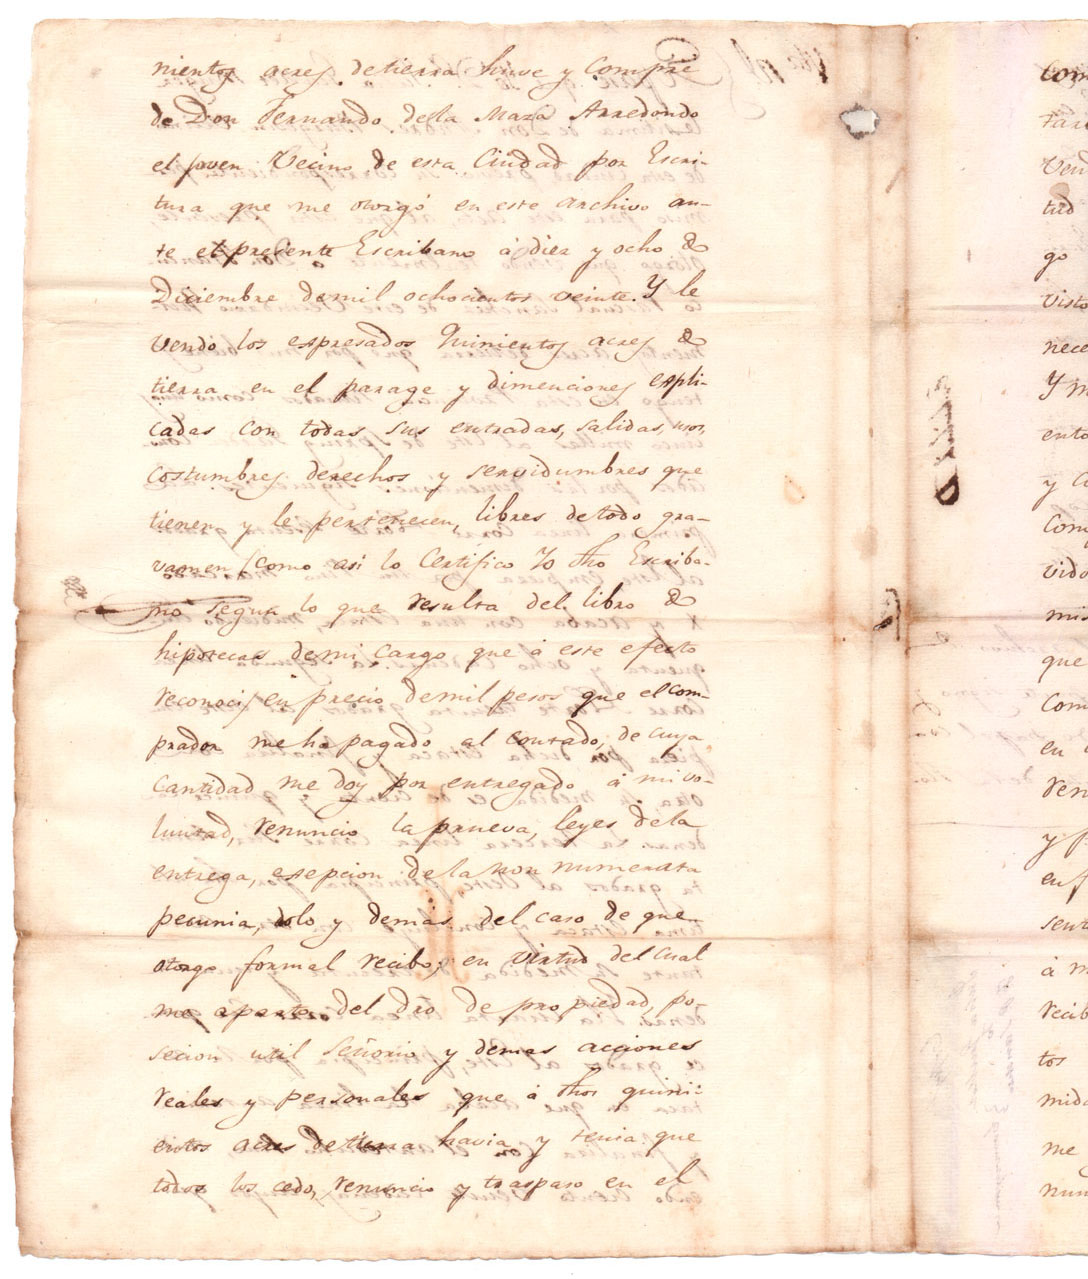 nientos acres de tierra huve y compre
de Don Fernando de la Maza Arredondo
el joven Vecino de esta Ciudad por Escri-
tura que me otorgó en este archivo an-
te el presente Escribano à diez y ocho de
Diciembre de mil ochocientos veinte. Y le
vendo los espresados quinientos acres de
tierra en el parage y dimenciones espli-
cadas con todas sus entradas, salidas, usos,
costumbres derechos y servidumbres que
tienen y le pertenecen, libres de todo gra-
vamen (como asi lo Certifico Yo dho Escriba-
no segun lo que resulta del libro de
hipotecas de mi cargo que á este efecto
reconoci) en precio de mil pesos que el com-
prador me ha pagado al contado, de cuya
cantidad me doy por entregado á mi vo-
luntad, renuncio la prueva, leyes de la
entrega, esepcion de la non numerata
pecunia, dolo y demás del caso de que
otorgo formal recibo, en virtud del cual
me aparto del dro de propiedad, po-
secion util Señorio y demas acciones
reales y personales que á dhos quini-
entos acres de tierra havia y tenia que
todos los cedo, renuncio y traspaso en el
com
Vend
tud
go
visto
nece
Y m
ento
y
Com
vido
mis
que
Com
en
ren
y
en
sent
á m
recib
tos
mida
me
num